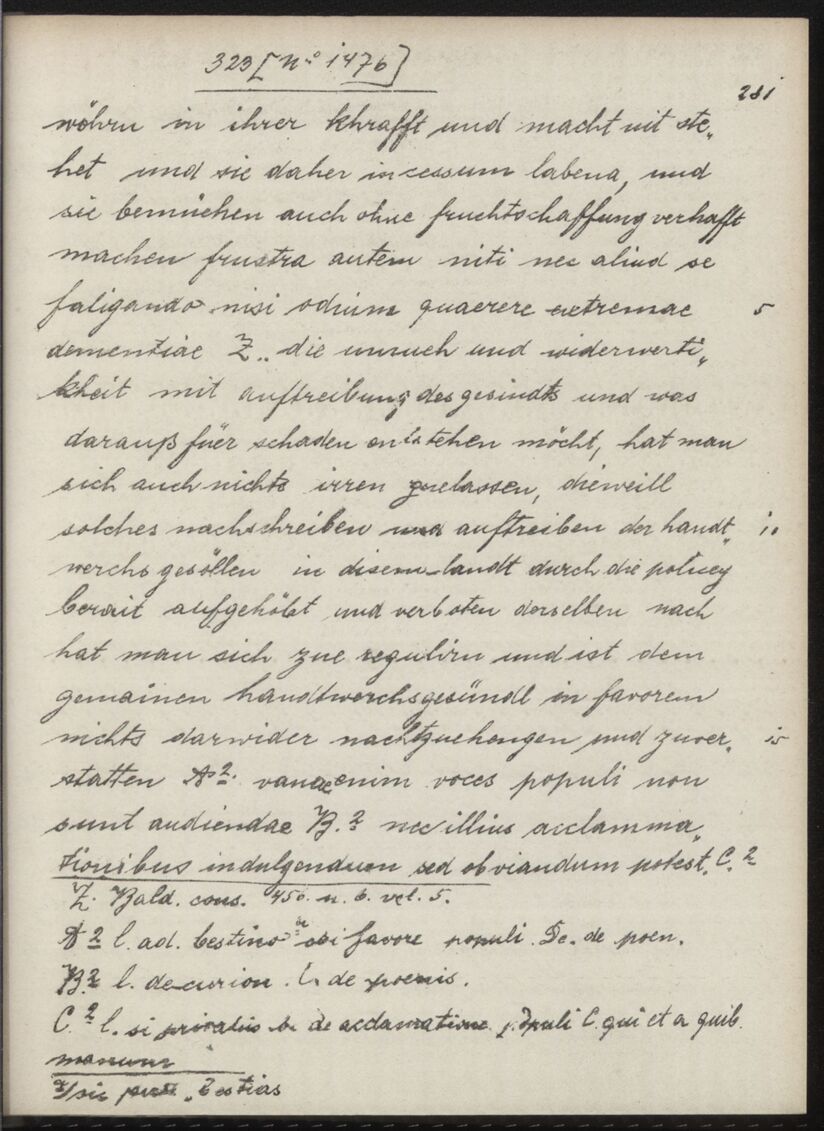 323 [No 1476]
281
wöhrn in ihrer khrafft und macht nit ste„
het und sie daher in cessum labena, und
sie bemüehen auch ohne fruchtschaffung verhafft
machen frustra autem niti nec aliud se
faligando nisi odium quaerere extremae 5
dementiae Z„ die unrueh und widerwerti„
kheit mit auftreibung des gesindts und was
darauß füer schaden entstehen möcht, hat man
sich auch nichts irren zuelassen, dieweill
solches nachschreiben und auftreiben der handt„ 10
werchsgesöllen in disem landt durch die policey
berait aufgehöbt und verboten derselben nach
hat man sich zue regulirn und ist dem
gemainen handtwerchsgesündl in favorem
nichts darwider nachtzuehengen und zuver„ 15
statten A2. vanae enim voces populi non
sunt audiendae B.2 nec illius acclamma„
tionibus indulgendum sed obviandum potest. C.2
Z. Bald. cons. 450. n. 6. vol. 5.
A2 l. ad. bestino favore populi. De. de poen.
B.2 l. decurion. de poenis.
C.2 l. si de acclamatione populi C. qui et a quib.
manum
sic „bestias